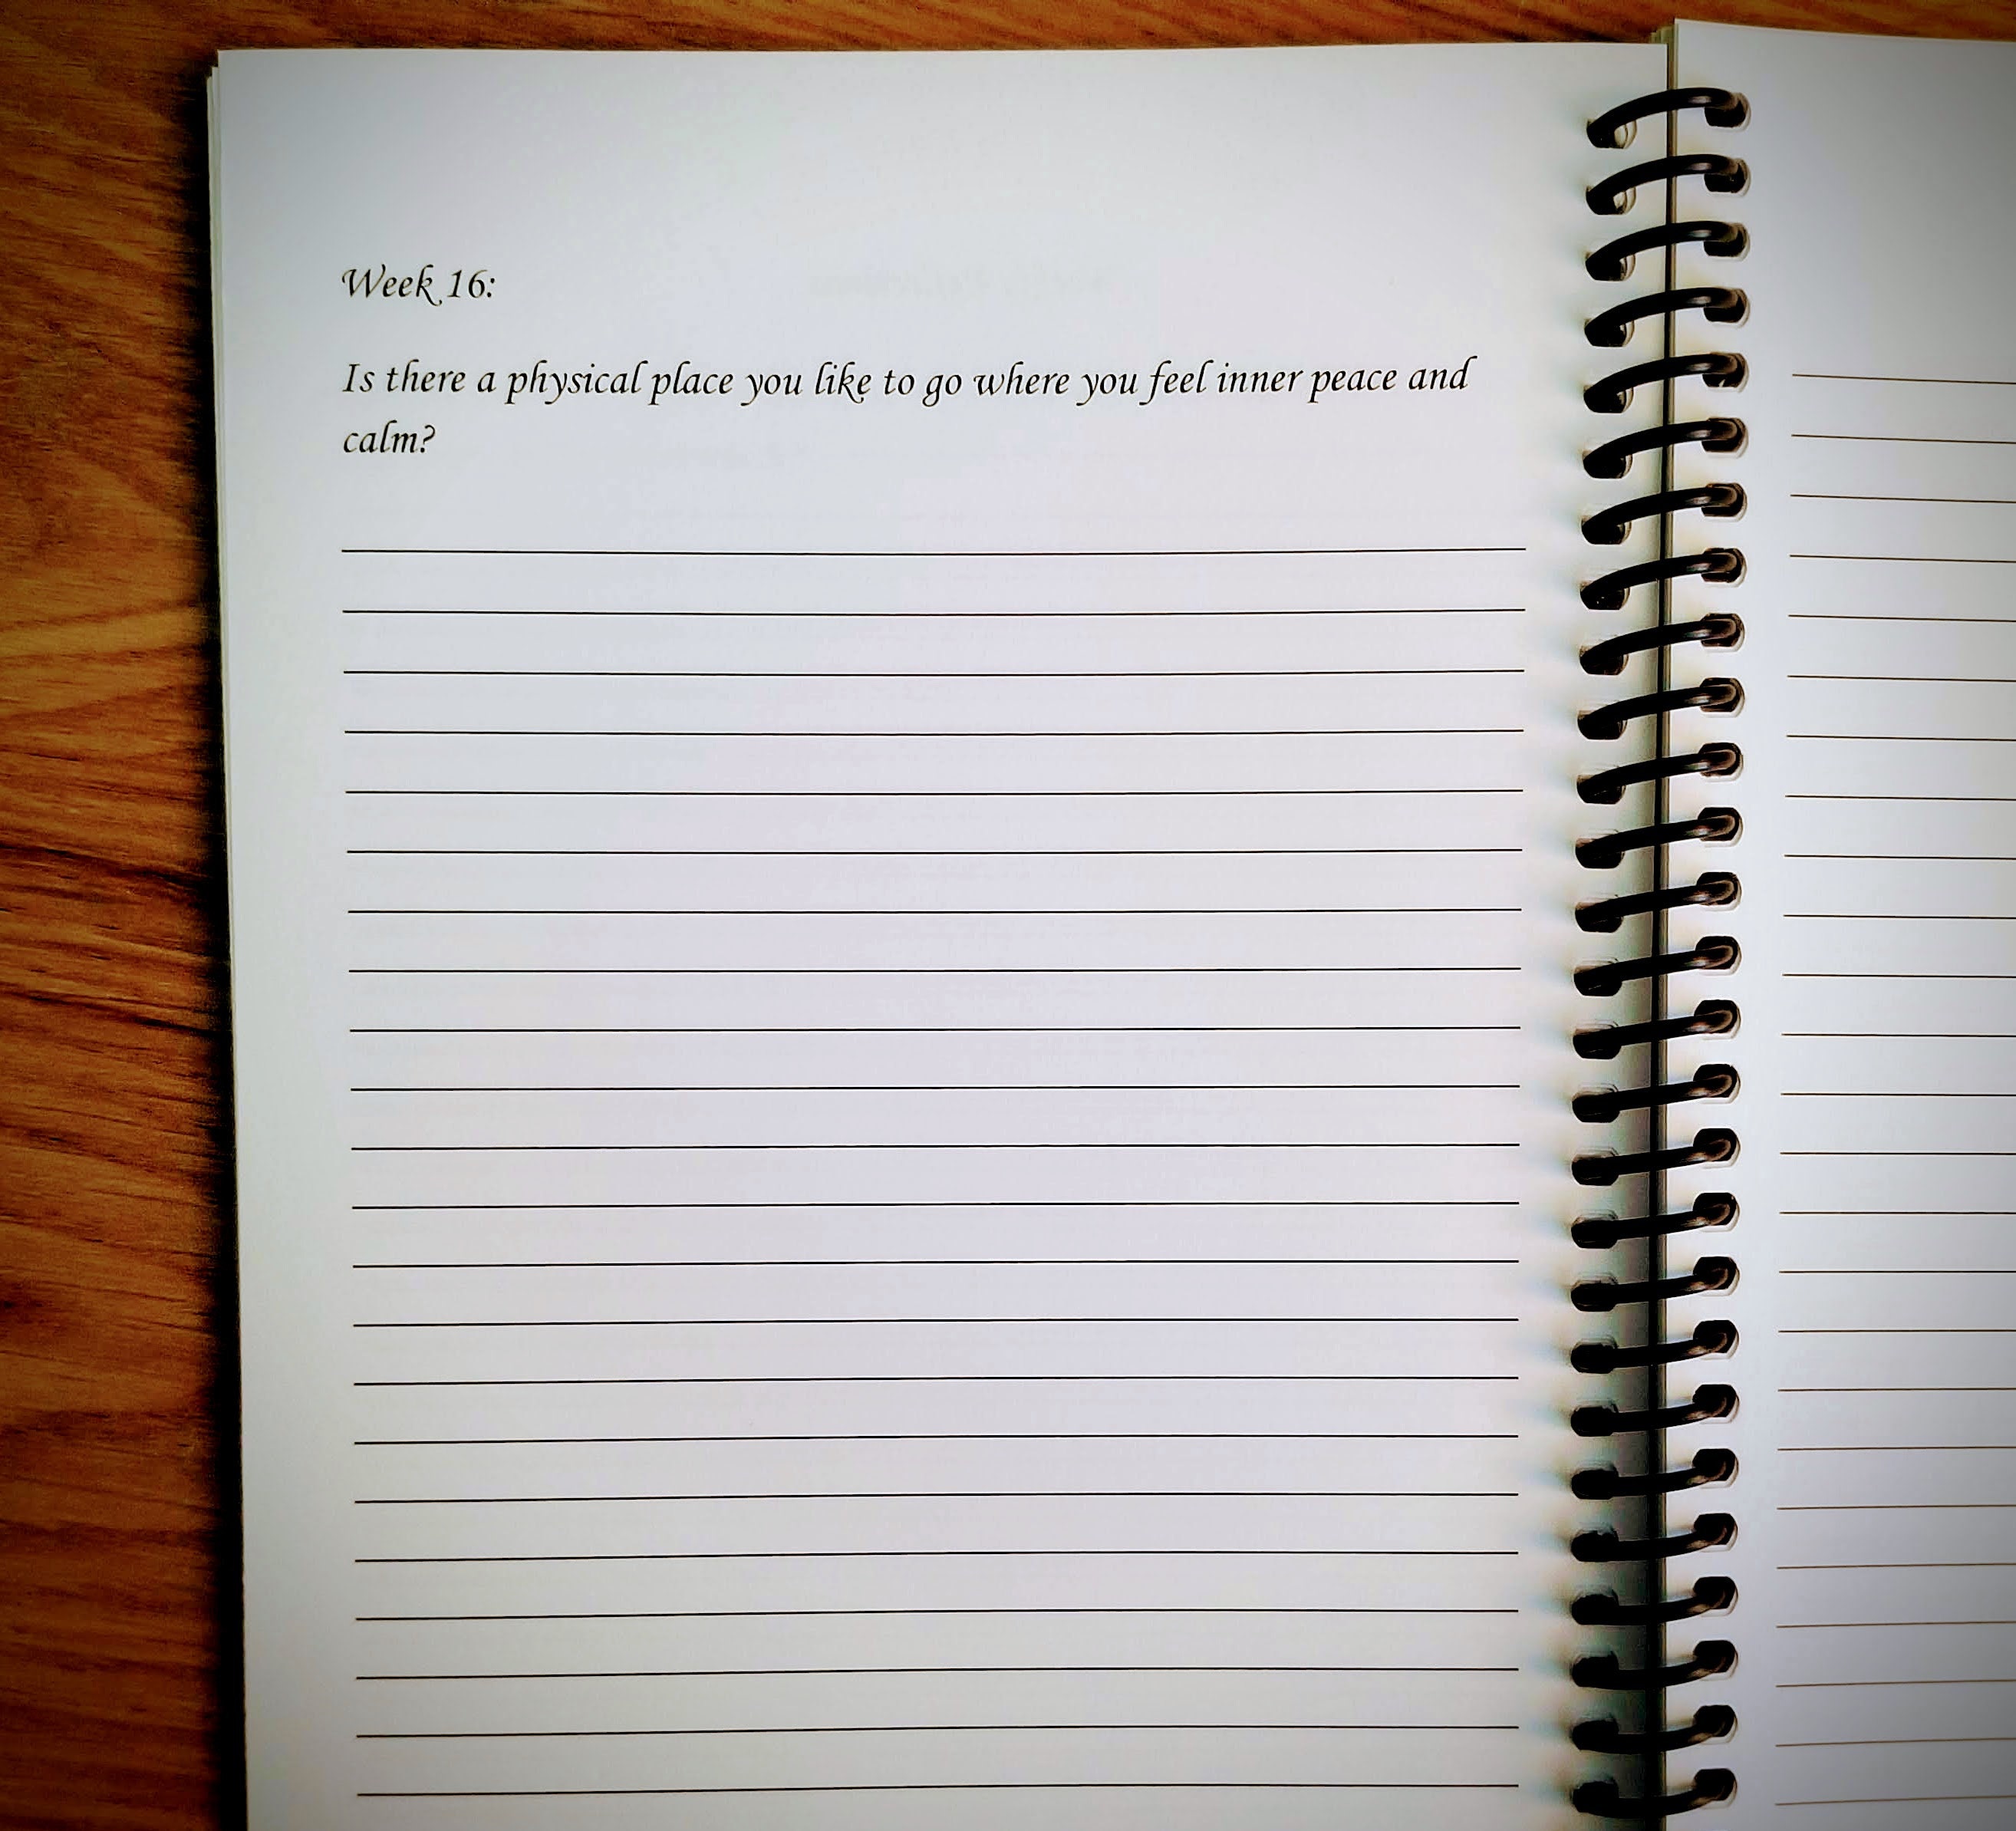 Week 16:
Is there a physical place you like to go where you feel inner peace and
calm?